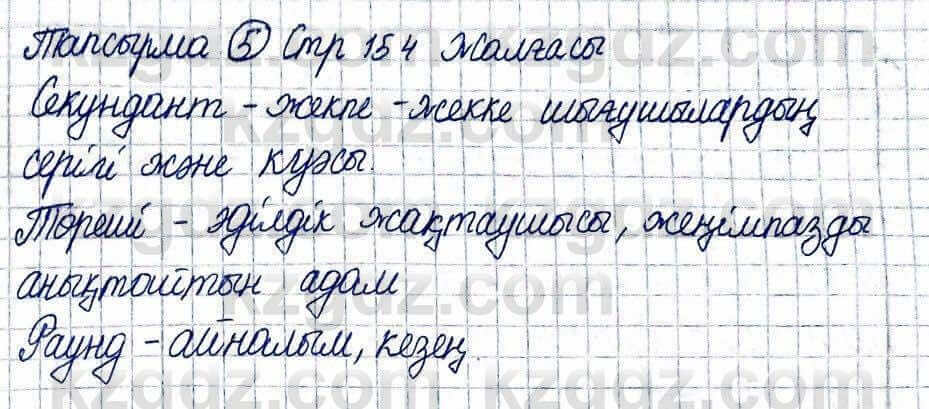 Тапсырма 5 Стр 154 Жалғасы
Секундант - жекпе - жекке шығушылардың
серігі және куәсы.
Төреші - әділдік жақтаушысы, жеңімпазды
анықтайтын адам
Раунд - айналым, кезең.